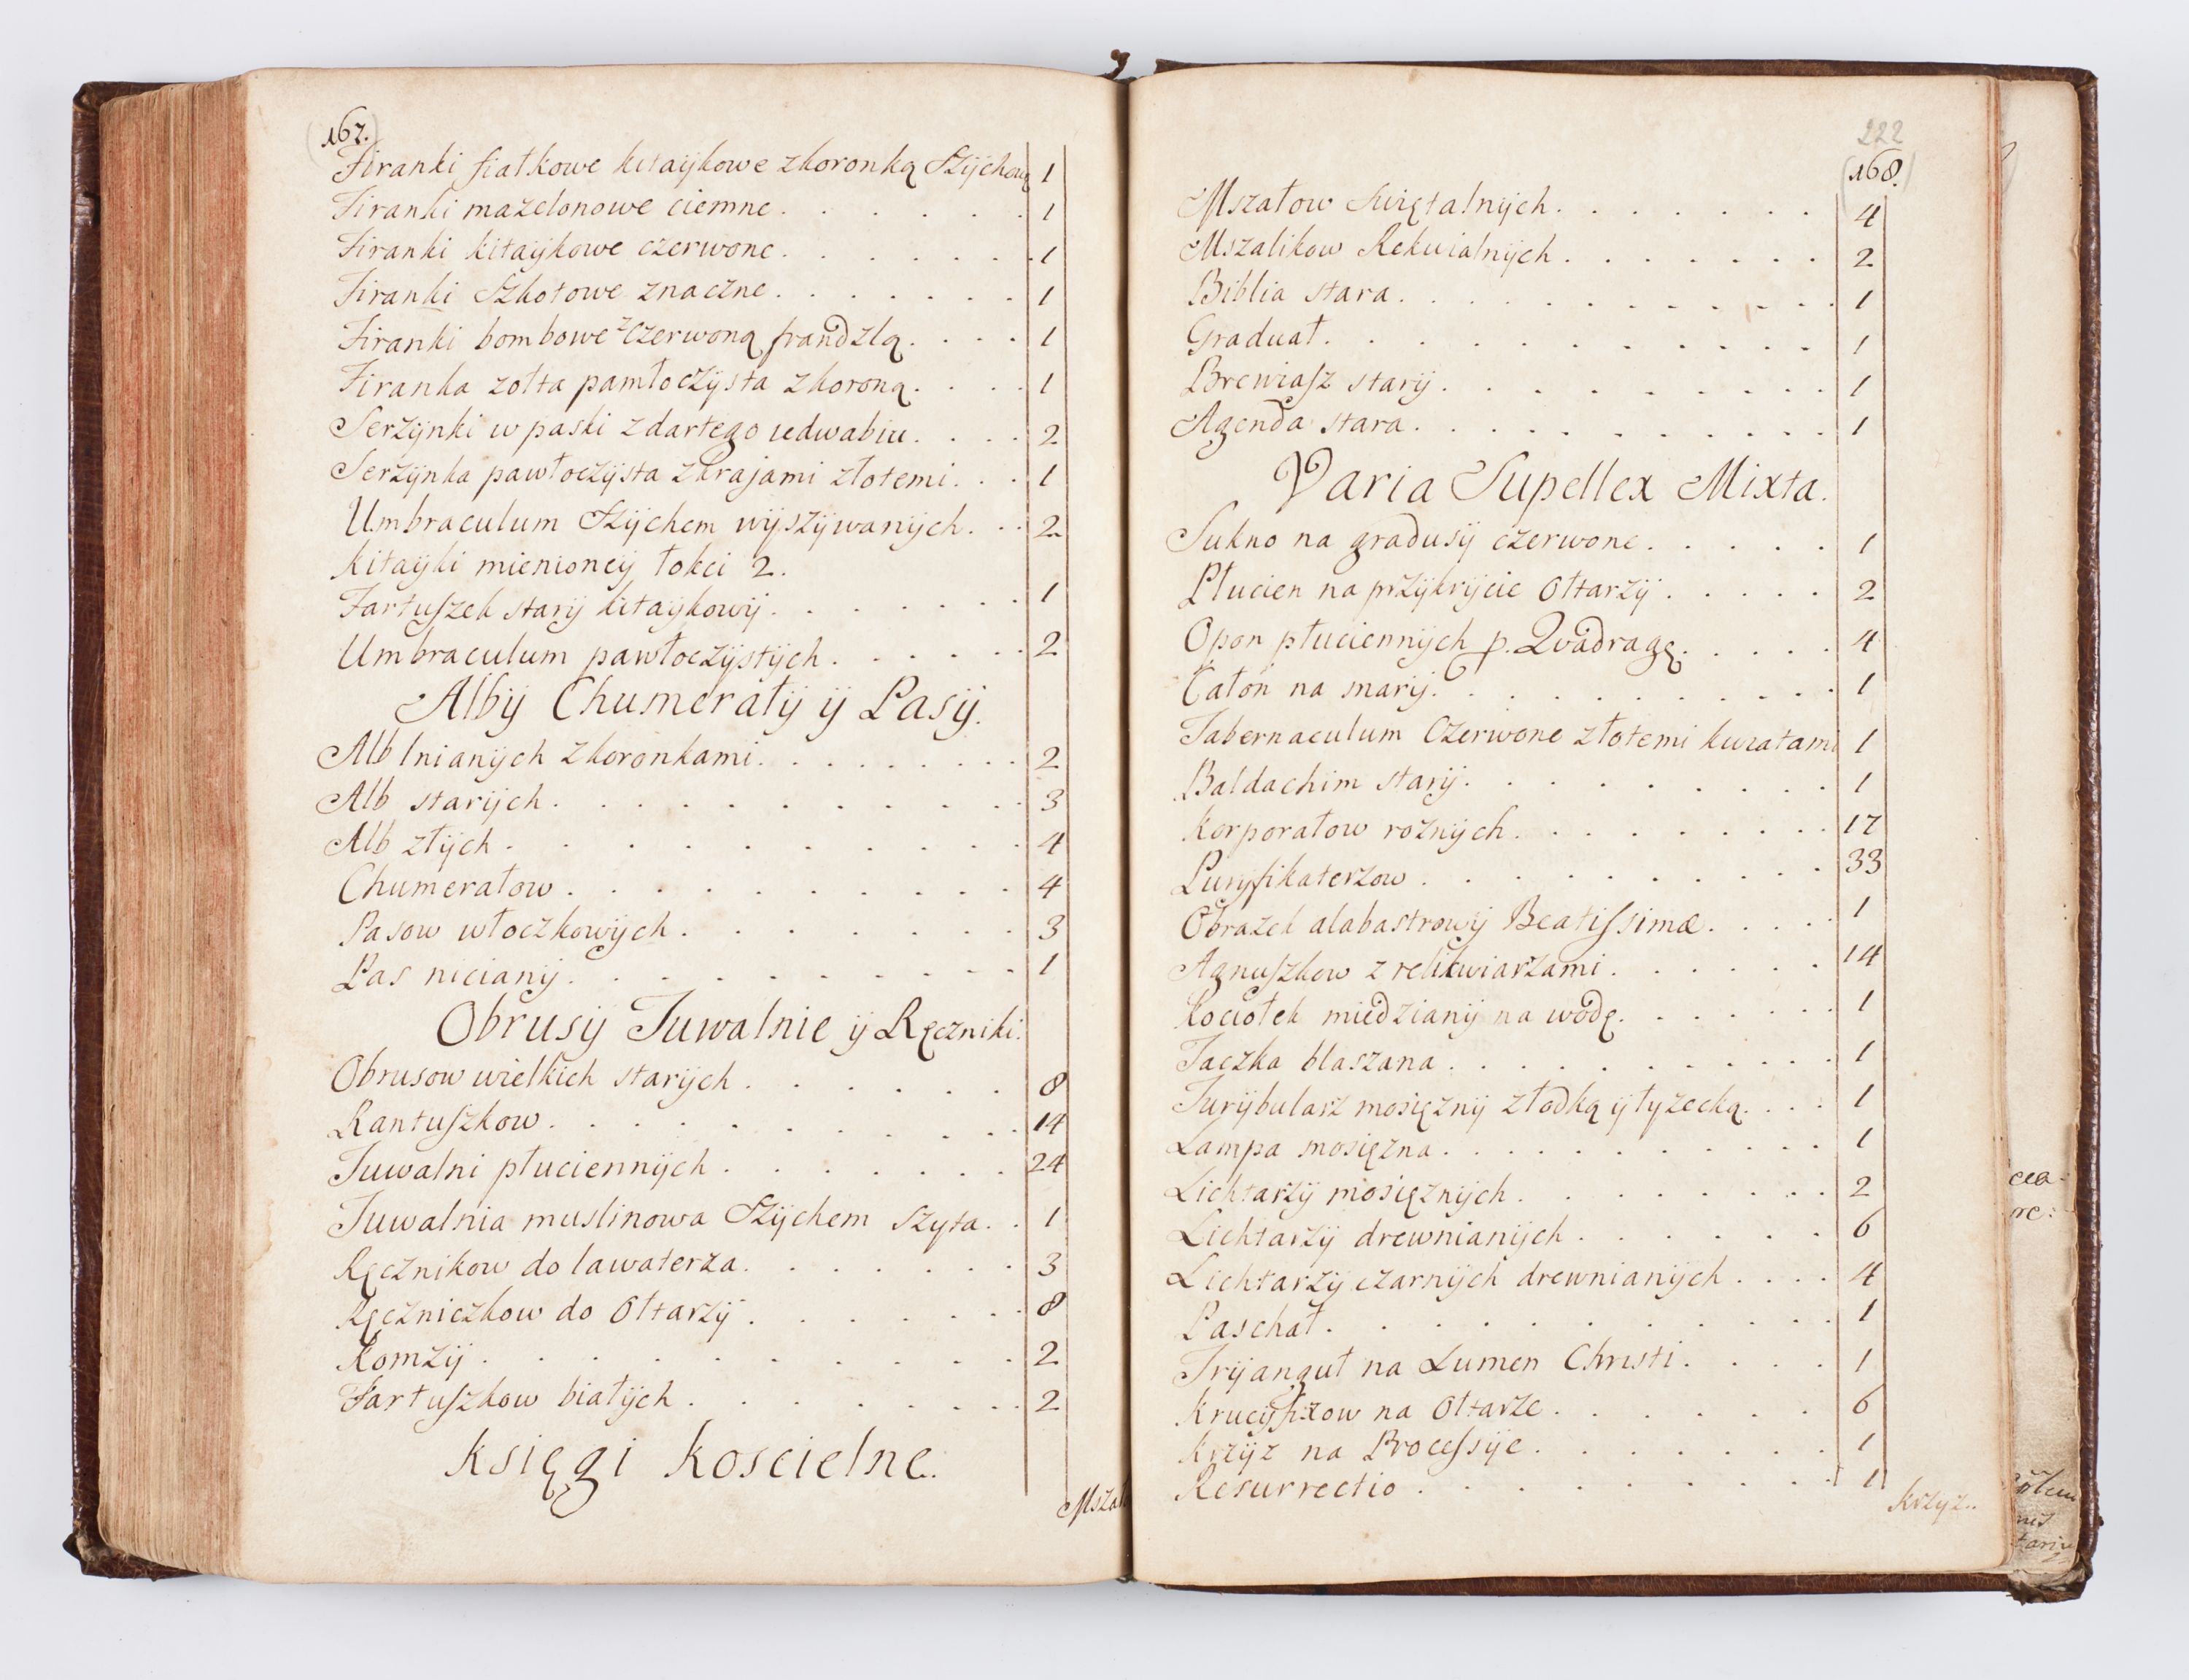 167.
Firanki fiałkowe kitaÿkowe z koronką Szÿchową 1
Firanki mazelonowe ciemne. 1
Firanki kitaÿkowe czerwone. 1
Firanki Szkotowe znaczne. 1
Firanki bombowe z czerwoną frandzlą. 1
Firanka zołta pamłoczÿsta z koroną. 1
Serzÿnki w paski z dartego iedwabiu. 2
Serzÿnka pawłoczÿsta z krajami złotemi. 1
Umbraculum Szÿchem wÿszÿwanÿch. 2
Kitaÿki mienioneÿ łokci 2.
Fartuszek starÿ kitaÿkowÿ. 1
Umbraculum pawłoczÿstÿch. 2
Albÿ Chumerałÿ ÿ Pasÿ.
Alb lnianÿch z koronkami. 2
Alb starÿch. 3
Alb złÿch. 4
Chumerałow. 4
Pasow włoczkowÿch. 3
Pas nicianÿ. 1
Obrusÿ Tuwalnie ÿ Ręczniki.
Obrusow wielkich starÿch. 8
Rantuszkow. 14
Tuwalni płuciennÿch. 24
Tuwalnia muslinowa Szÿchem szyta. 1
Ręcznikow do lawaterza. 3
Ręczniczkow do Ołtarzÿ. 8
Komzÿ. 2
Fartuszkow białÿch. 2
Księgi Koscielne.
Mszał
222
168.
Mszałow Swiętalnÿch. 4
Mszalikow Rekwialnÿch. 2
Biblia stara. 1
Graduał. 1
Brewiasz starÿ. 1
Agenda stara. 1
Varia Supellex Mixta.
Sukno na gradusÿ czerwone. 1
Płucien na przÿkrÿcie Ołtarzÿ. 2
Opon płuciennÿch p. Quadragę. 4
Całón na marÿ. 1
Tabernaculum Czerwone złotemi kwiatami 1
Baldachim starÿ. 1
Korporałow roznÿch. 17
Purÿfikaterzow. 33
Obrazek alabastrowÿ Beatissimæ. 1
Agnuszkow z relikwiarzami. 14
Kociołek miedzianÿ na wodę. 1
Taczka blaszana. 1
Turÿbularz mosięznÿ z łodką ÿ łyzecką. 1
Lampa mosięzna. 1
Lichtarzÿ mosięznÿch. 2
Lichtarzÿ drewnianÿch. 6
Lichtarzÿ czarnÿch drewnianÿch. 4
Paschał. 1
Trÿanguł na Lumen Christi. 1
Krucÿfixow na Ołtarze. 6
Krzÿz na Processÿe. 1
Resurrectio. 1
Krzyz.